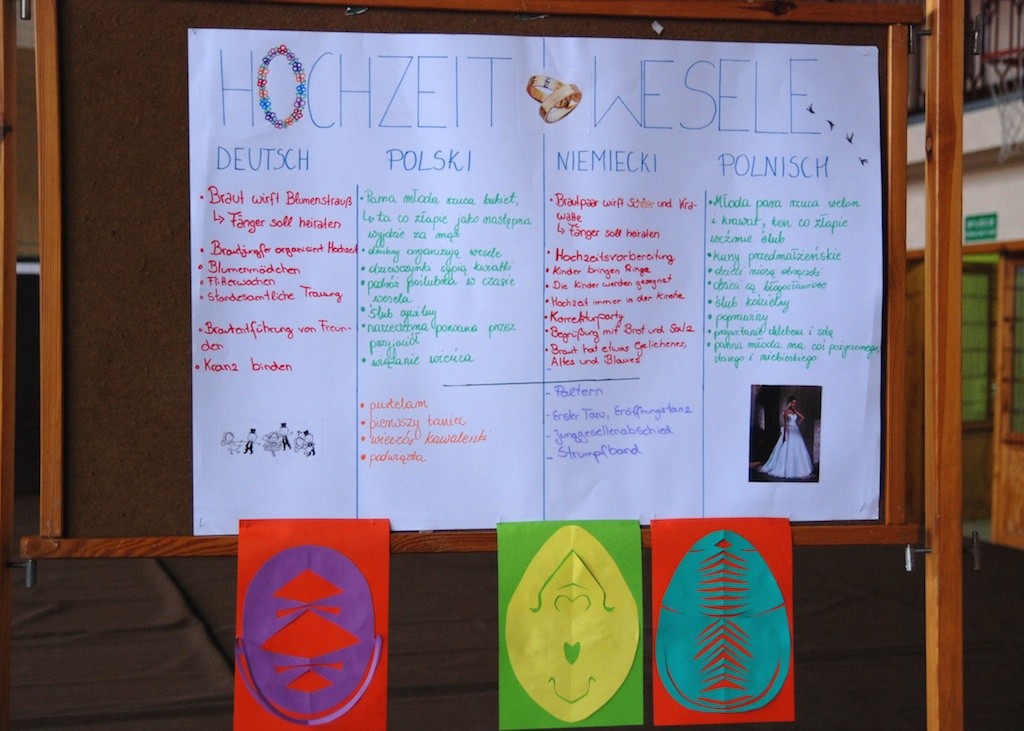 HOCHZEIT WESELE
DEUTSCH
• Braut wirft Blumenstrauß
↳ Fänger soll heiraten
• Brautjungfer organisiert Hochzeit
• Blumenmädchen
• Flitterwochen
• standesamtliche Trauung
• Brautentführung von Freun-
den
• Kranz binden
POLSKI
• Panna młoda rzuca bukiet,
↳ ta co złapie jako następna
wyjdzie za mąż
• druhny organizują wesele
• dziewczynki sypią kwiatki
• podróż poślubna w czasie
wesela
• ślub cywilny
• narzeczona porwana przez
przyjaciół
• wiązanie wieńca
• purtelam
• pierwszy taniec
• wieczór kawalerski
• podwiązka
NIEMIECKI
• Brautpaar wirft Schleier und Kra-
watte
↳ Fänger soll heiraten
• Hochzeitsvorbereitung
• Kinder bringen Ringe
• Die Kinder werden gesegnet
• Hochzeit immer in der Kirche
• Korrekturparty
• Begrüßung mit Brot und Salz
• Braut hat etwas Geliehenes,
Altes und Blaues
- Poltern
- Erster Tanz, Eröffnungstanz
- Junggesellenabschied
- Strumpfband
POLNISCH
• Młoda para rzuca welon
i krawat, ten co złapie
weźmie ślub
• kursy przedmałżeńskie
• dzieci niosą obrączki
• dzieci są błogosławione
• ślub kościelny
• poprawiny
• przywitanie chlebem i solą
• panna młoda ma coś pożyczonego,
starego i niebieskiego